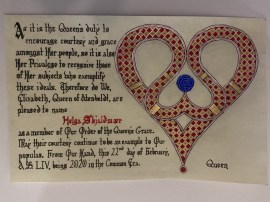 As it is the Queen's duty to
encourage courtesy and grace
amongst Her people, so it is also
Her Privilege to recognize those
of Her subjects who exemplify
these ideals. Therefore do We,
Elizabeth, Queen of Meridies, are
pleased to name
Helga Skjaldmær
as a member of Our Order of the Queen's Grace.
May their courtesy continue to be an example to Our
populus. From Our Hand, this 22nd day of February,
A.S. LIV, being 2020 in the Common Era.
Queen